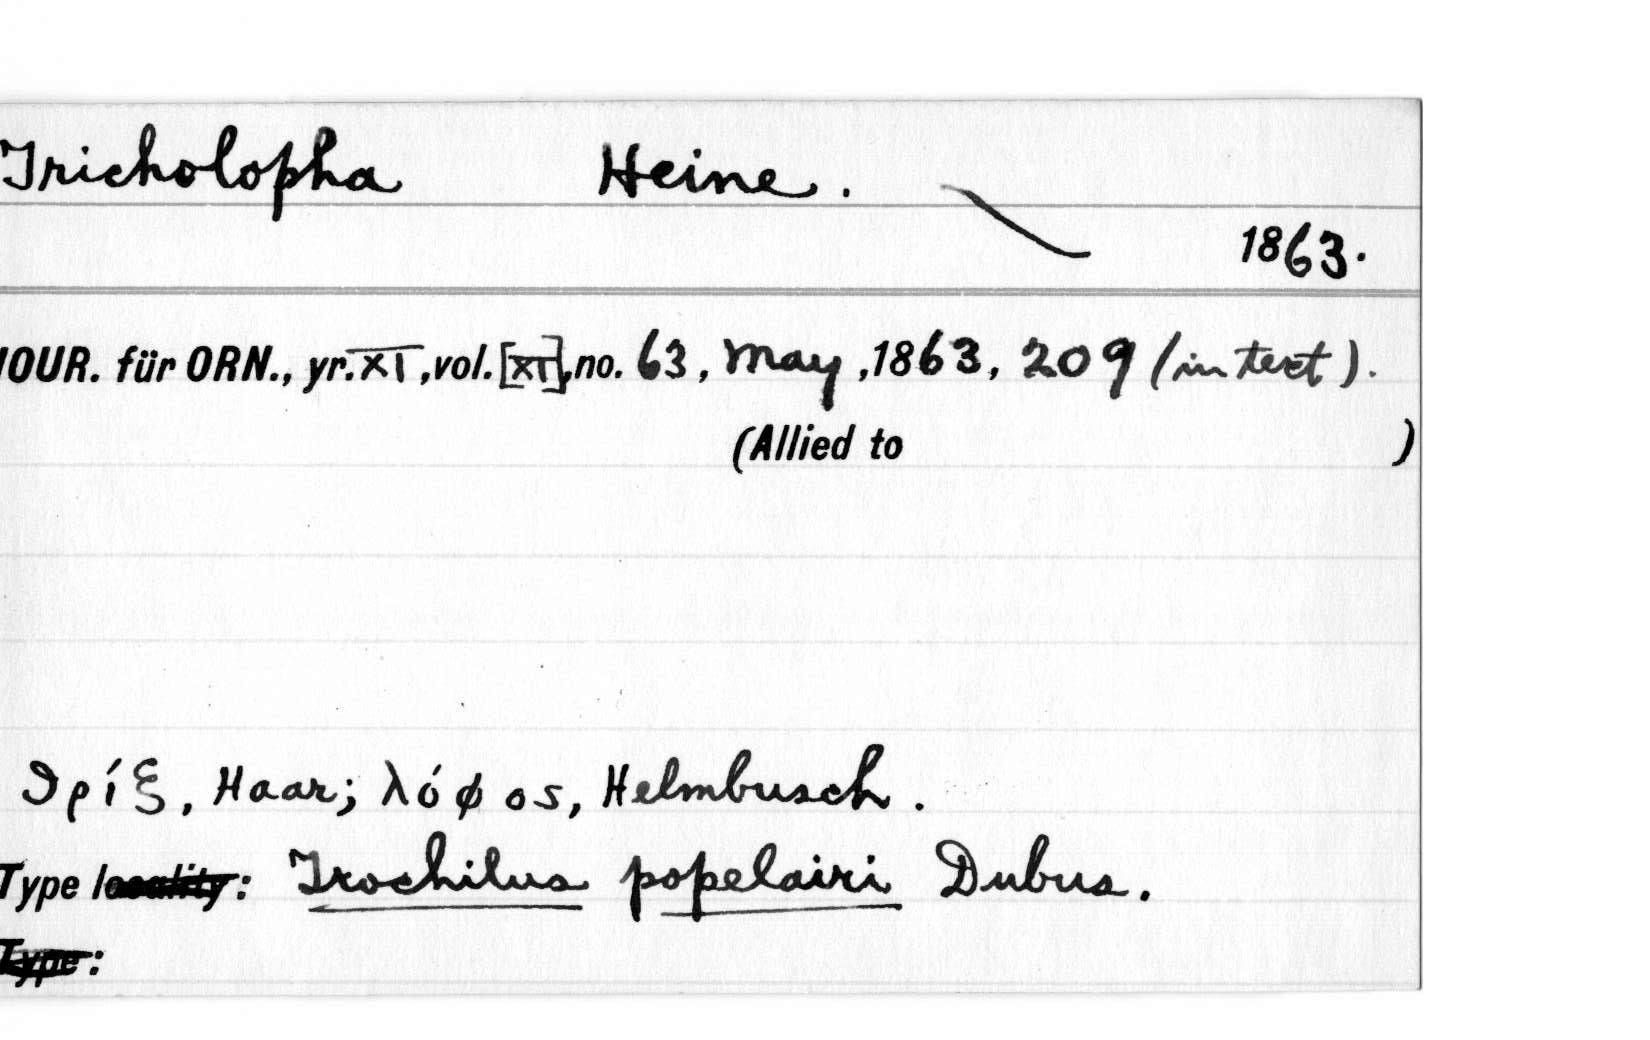 Tricholopha Heine.
1863.
JOUR. für ORN., yr. XI, vol. [XI], no. 63, May, 1863, 209 (in text).
(Allied to )
θρίξ, Haar; λόφος, Helmbusch.
Type locality: Trochilus popelairi Dubus.
Type: